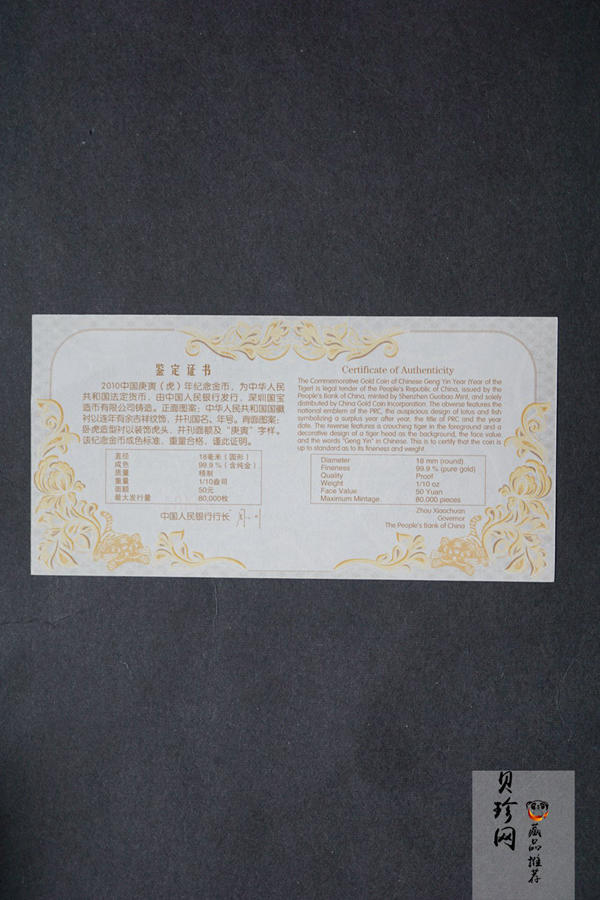 鉴定证书
2010中国庚寅（虎）年纪念金币，为中华人民
共和国法定货币，由中国人民银行发行，深圳国宝
造币有限公司铸造。正面图案：中华人民共和国国徽
衬以连年有余吉祥纹饰，并刊国名、年号。背面图案：
卧虎造型衬以装饰虎头，并刊面额及“庚寅”字样。
该纪念金币成色标准、重量合格，谨此证明。
直径 18毫米（圆形）
成色 99.9%（含纯金）
质量 精制
重量 1/10盎司
面额 50元
最大发行量 80,000枚
中国人民银行行长
Certificate of Authenticity
The Commemorative Gold Coin of Chinese Geng Yin Year (Year of the
Tiger) is legal tender of the People's Republic of China, issued by the
People's Bank of China, minted by Shenzhen Guobao Mint, and solely
distributed by China Gold Coin Incorporation. The obverse features the
national emblem of the PRC, the auspicious design of lotus and fish
symbolizing a surplus year after year, the title of PRC and the year
date. The reverse features a crouching tiger in the foreground and a
decorative design of a tiger head as the background, the face value
and the words "Geng Yin" in Chinese. This is to certify that the coin is
up to standard as to its fineness and weight.
Diameter 18 mm (round)
Fineness 99.9 % (pure gold)
Quality Proof
Weight 1/10 oz
Face Value 50 Yuan
Maximum Mintage 80,000 pieces
Zhou Xiaochuan
Governor
The People's Bank of China
贝珍网
藏品推荐